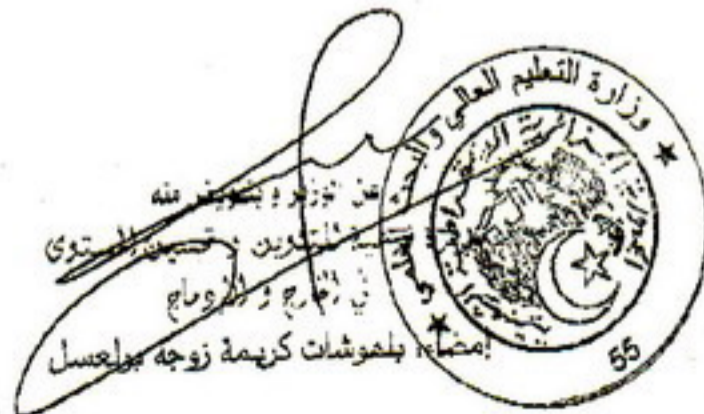 وزارة التعليم العالي والبحث العلمي
الجمهورية الجزائرية الديمقراطية الشعبية
55
عن الوزير وبتفويض منه
للتكوين وتحسين المستوى
في الخارج و الإدماج
إمضاء: بلهوشات كريمة زوجه بولعسل